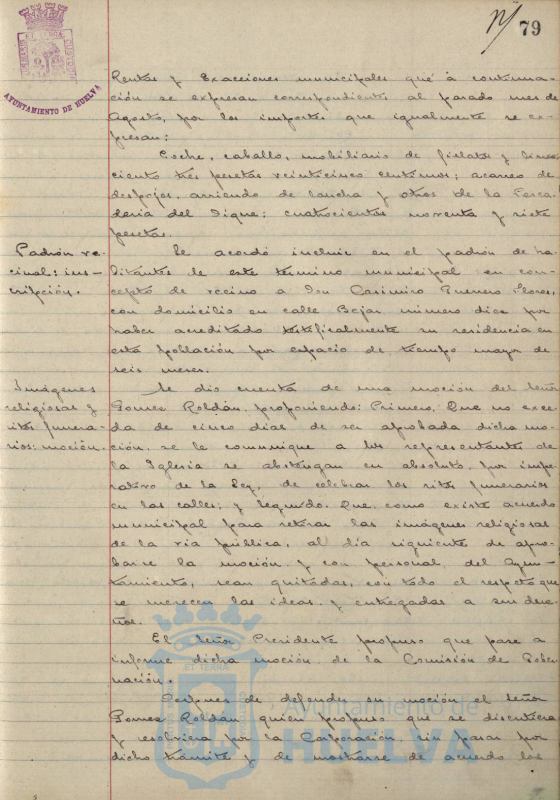 79
AYUNTAMIENTO DE HUELVA
Rentas y Exacciones municipales que á continua-
ción se expresan correspondientes al pasado mes de
Agosto, por los importes que igualmente se ex-
presan:
Coche, caballo, mobiliario de fielatos y
ciento tres pesetas veinticinco centimos; acarreo de
despojos, arriendo de lancha y otros de la Pesca-
deria del Dique; cuatrocientos noventa y siete
pesetas.
Padrón ve-
cinal: ins-
cripción.
Se acordó incluir en el padrón de ha-
bitantes de este termino municipal en con-
cepto de vecino a Don Casimiro Guerrero Flores,
con domicilio en calle Bejar número diez por
haber acreditado testificalmente su residencia en
esta población por espacio de tiempo mayor de
seis meses.
Imágenes
religiosas y
ritos funera-
rios: moción.
Se dio cuenta de una moción del señor
Gomez Roldán, proponiendo: Primero, Que no exce-
da de cinco dias de ser aprobada dicha mo-
ción, se le comunique a los representantes de
la Iglesia se abstengan en absoluto, por impe-
rativo de la Ley, de celebrar los ritos funerarios
en las calles; y Segundo. Que, como existe acuerdo
municipal para retirar las imágenes religiosas
de la via pública, al día siguiente de apro-
barse la moción y con personal del Ayun-
tamiento, sean quitadas, con todo el respeto que
se merecen las ideas y entregadas a sus due-
ños.
El señor Presidente propuso que pase a
informe dicha moción de la Comisión de Gober-
nación.
Despues de defender su moción el señor
Gomez Roldán quien propuso que se discutiera
y resolviera por la Corporación, sin pasar por
dicho trámite y de mostrarse de acuerdo los
Ayuntamiento de
HUELVA